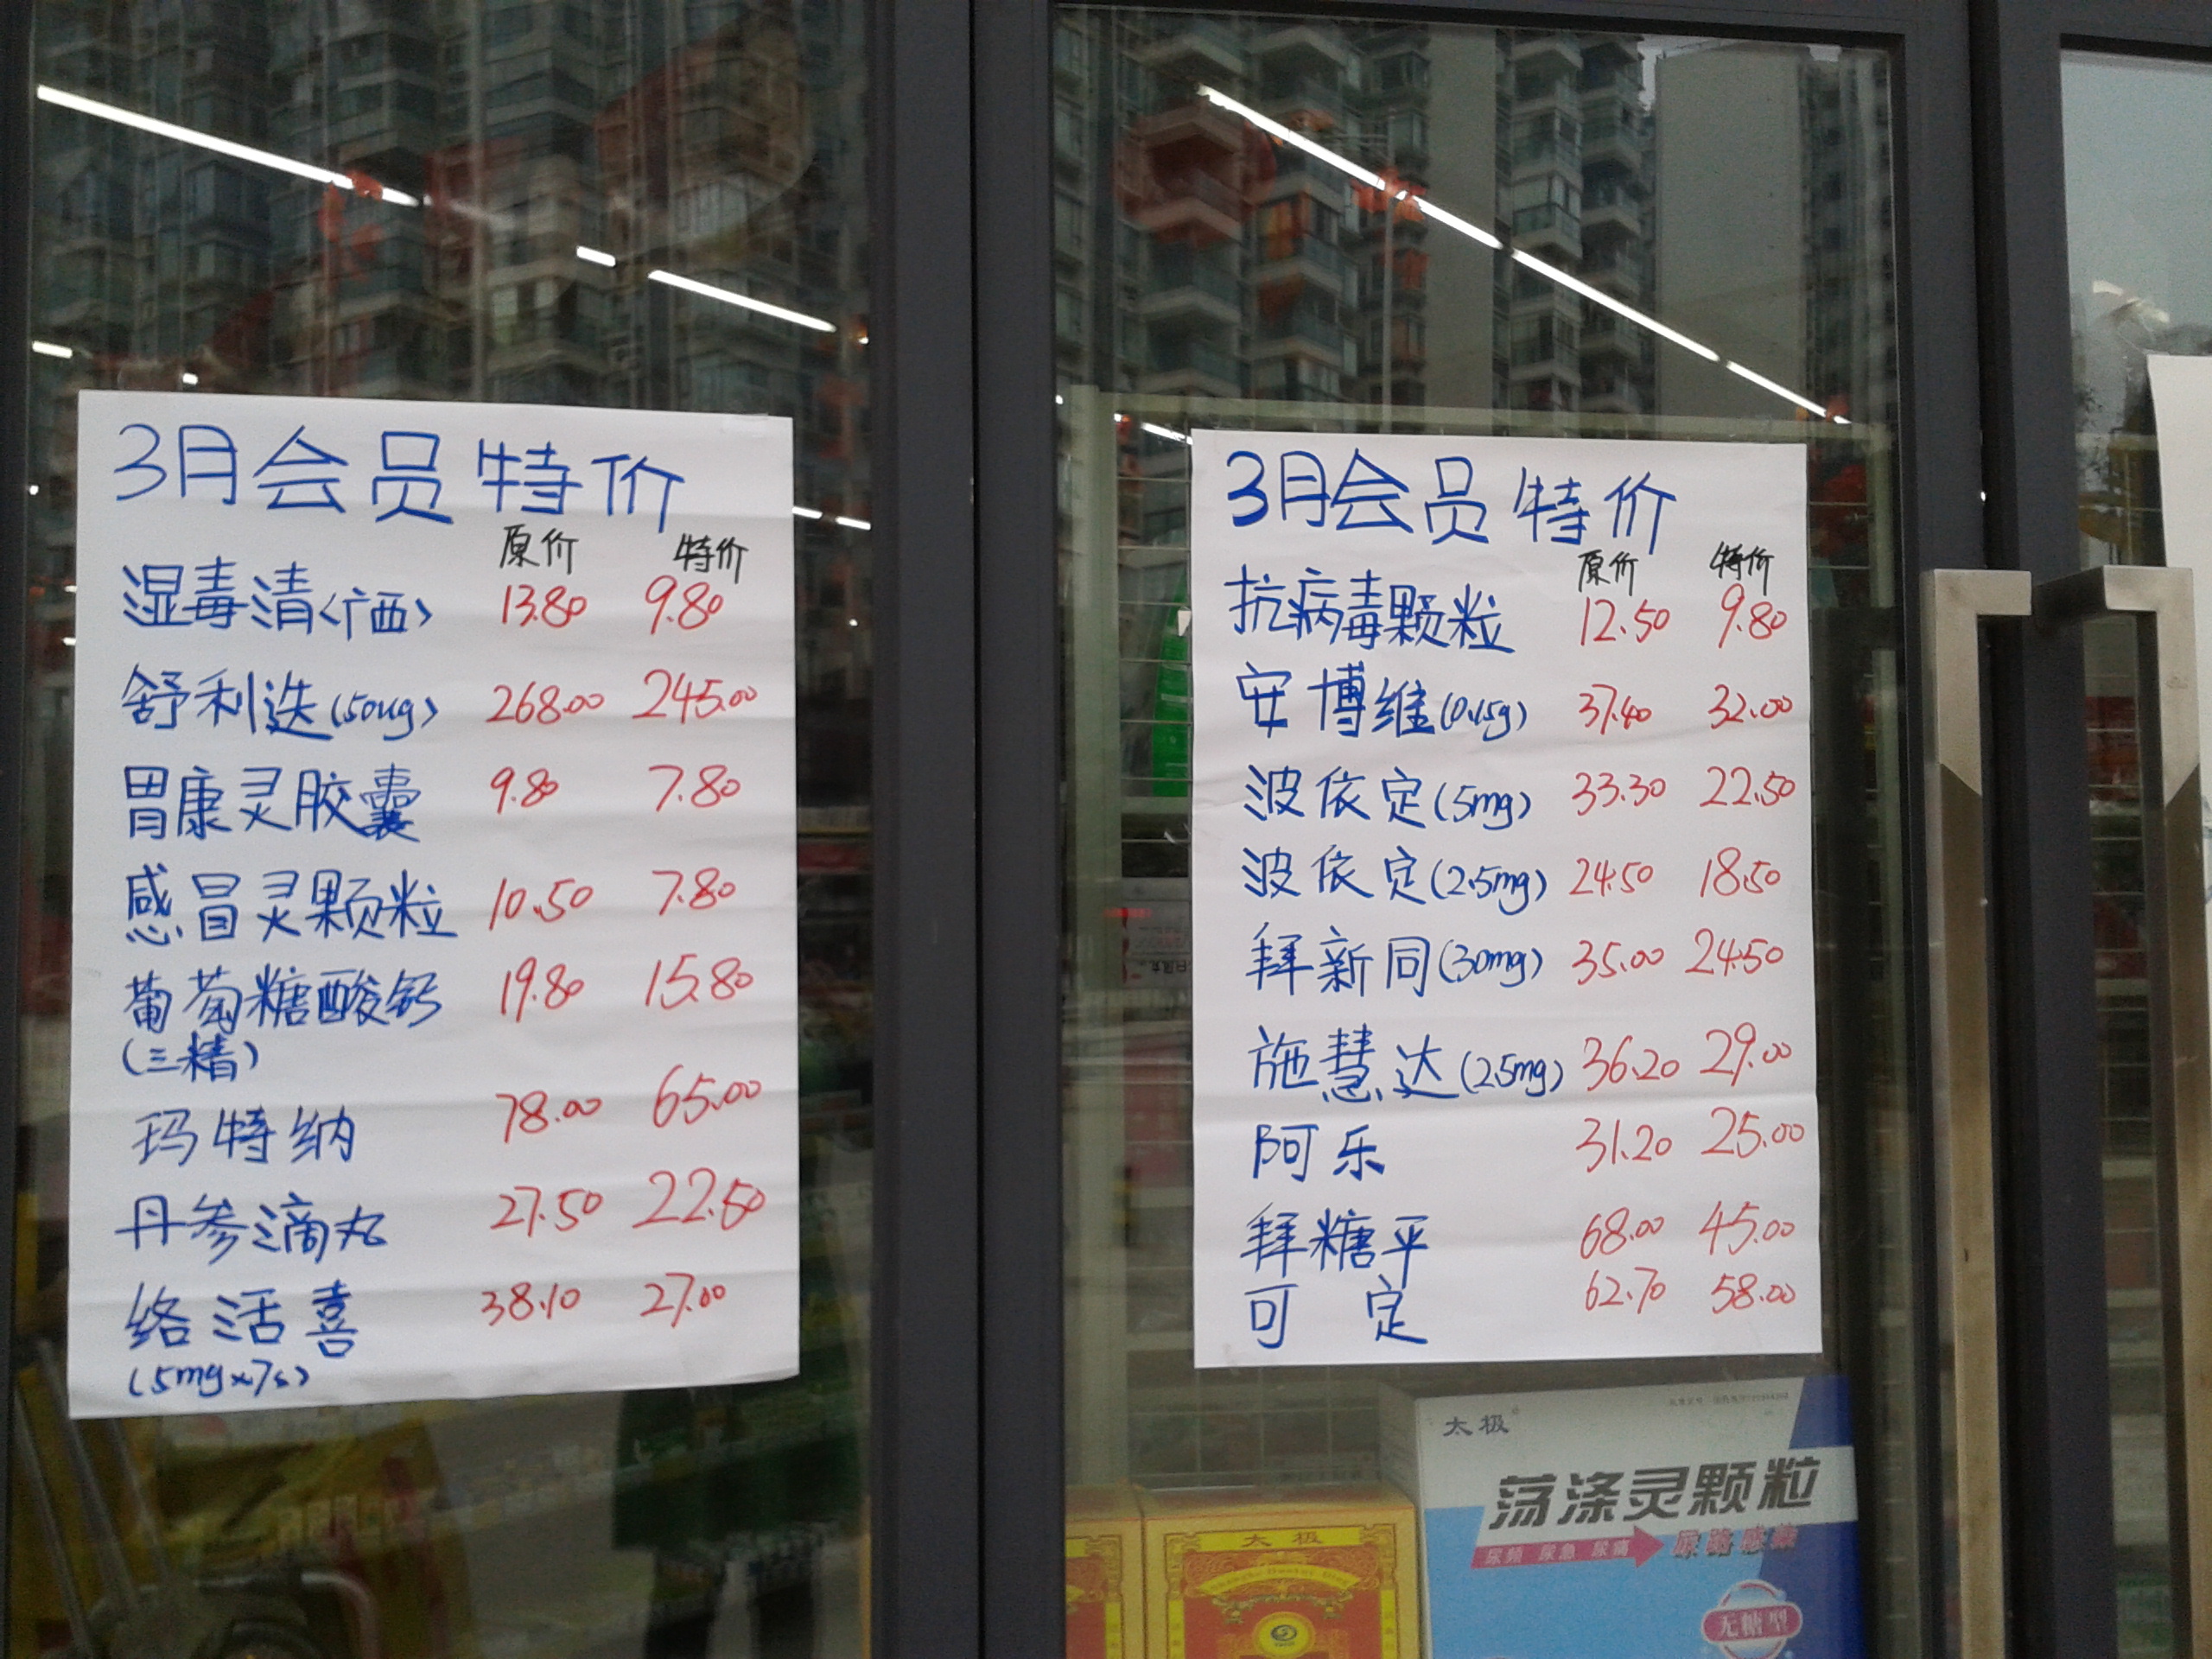 3月会员特价
原价 特价
湿毒清(广西) 13.80 9.80
舒利迭(50ug) 268.00 245.00
胃康灵胶囊 9.80 7.80
感冒灵颗粒 10.50 7.80
葡萄糖酸钙 19.80 15.80
(三精)
玛特纳 78.00 65.00
丹参滴丸 27.50 22.50
络活喜 38.10 27.00
(5mg×7s)
3月会员特价
原价 特价
抗病毒颗粒 12.50 9.80
安博维(0.15g) 37.40 32.00
波依定(5mg) 33.30 22.50
波依定(2.5mg) 24.50 18.50
拜新同(30mg) 35.00 24.50
施慧达(2.5mg) 36.20 29.00
阿乐 31.20 25.00
拜糖平 68.00 45.00
可定 62.70 58.00
太极
荡涤灵颗粒
尿频 尿急 尿痛 尿路感染
无糖型
太极